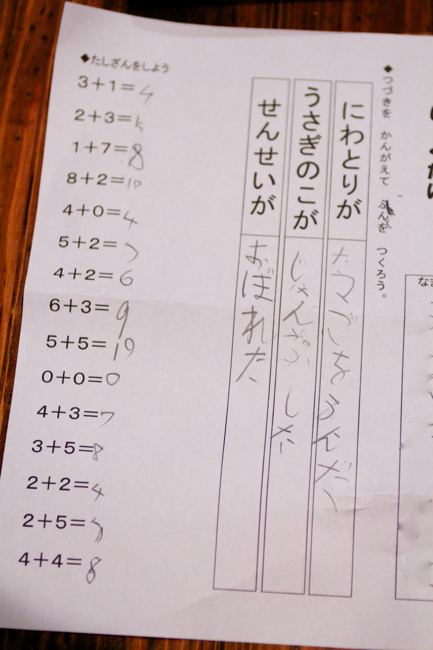 ◆つづきを かんがえて ぶんを つくろう。
にわとりが たまごをうんだ、
うさぎのこが じゃんぷした
せんせいが おぼれた
◆たしざんをしよう
3+1=4
2+3=5
1+7=8
8+2=10
4+0=4
5+2=7
4+2=6
6+3=9
5+5=10
0+0=0
4+3=7
3+5=8
2+2=4
2+5=7
4+4=8